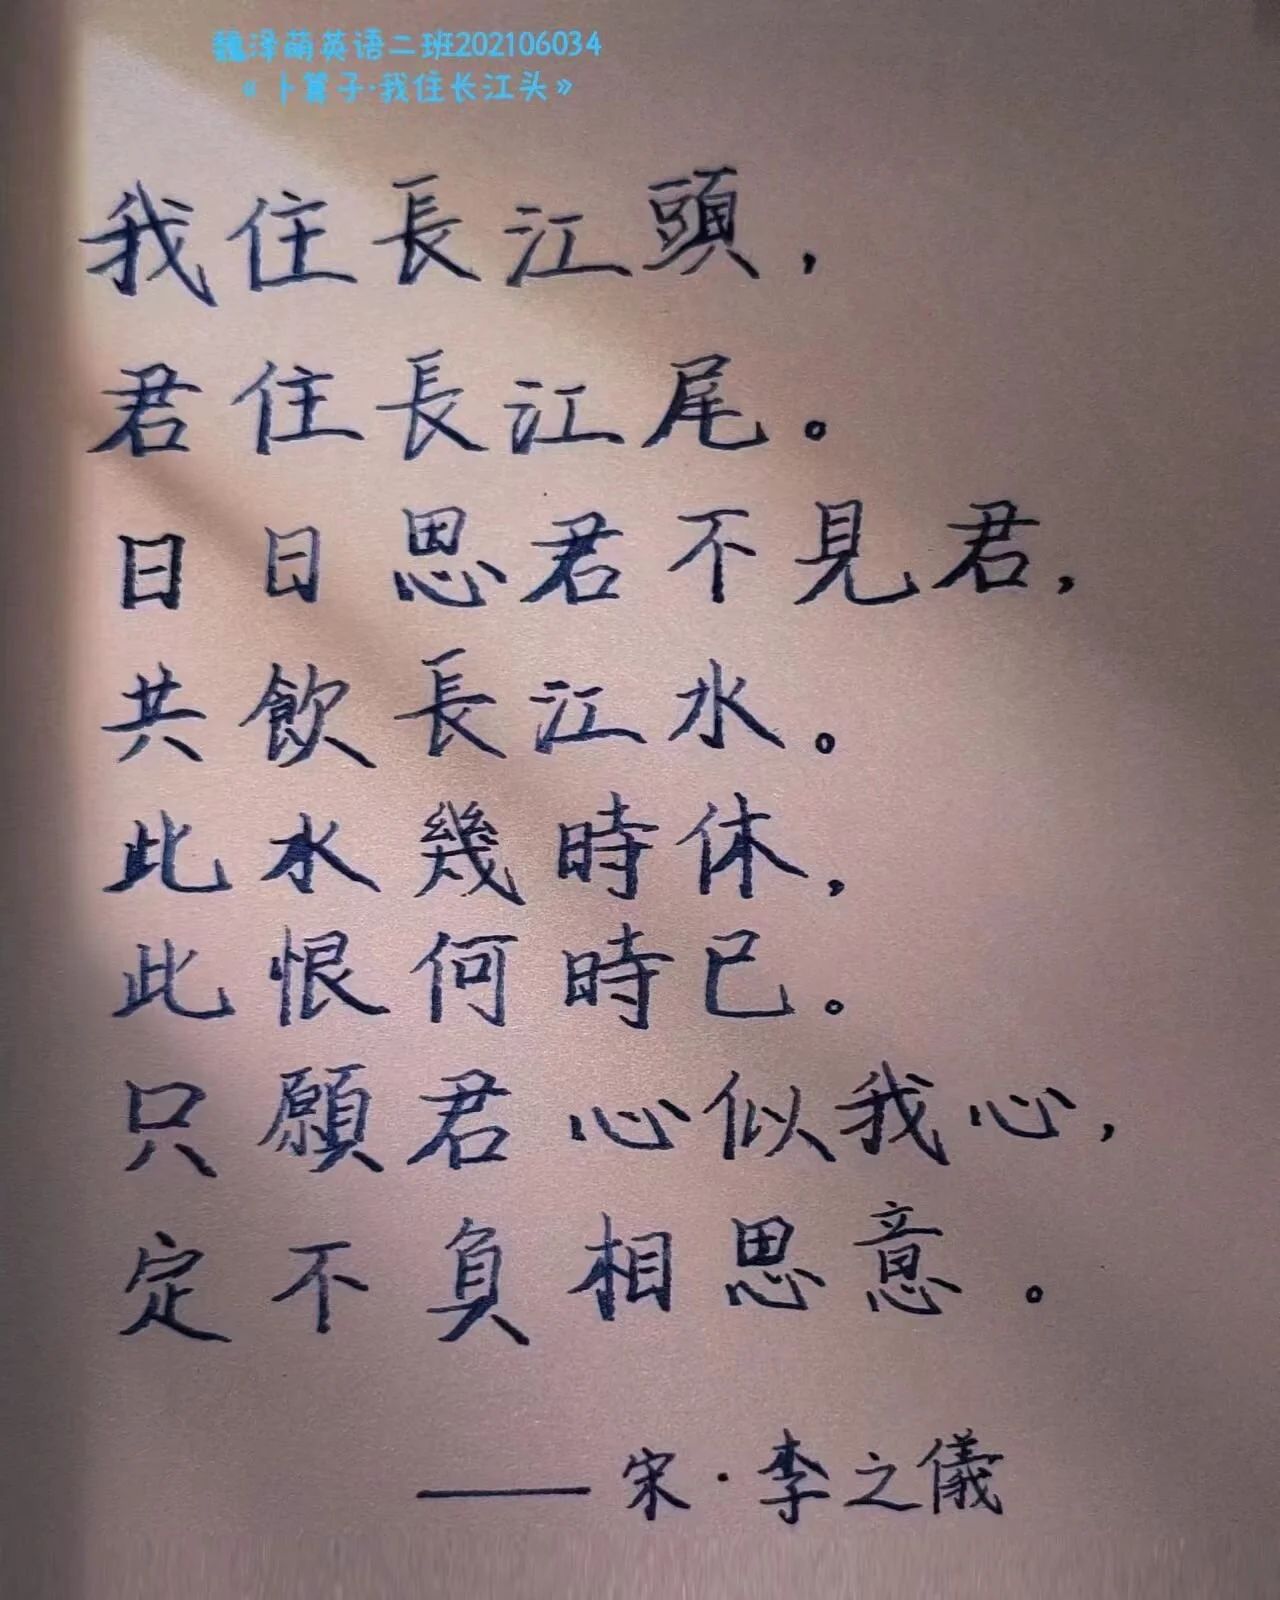 魏泽萌英语二班202106034
《卜算子·我住长江头》
我住長江頭，
君住長江尾。
日日思君不見君，
共飲長江水。
此水幾時休，
此恨何時已。
只願君心似我心，
定不負相思意。
——宋·李之儀